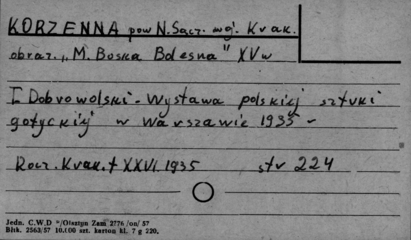 KORZENNA pow N.Sącz. wój. Krak.
obraz. „M. Boska Bolesna" XV w
T. Dobrowolski - Wystawa polskiej sztuki
gotyckiej w Warszawie 1935 -
Rocz. Krak. t XXVI. 1935 str 224
Jedn. C.W.D /Olsztyn Zam 2776 /on/ 57
Błtk. 2563/57 10.000 szt. karton kl. 7 g 220,